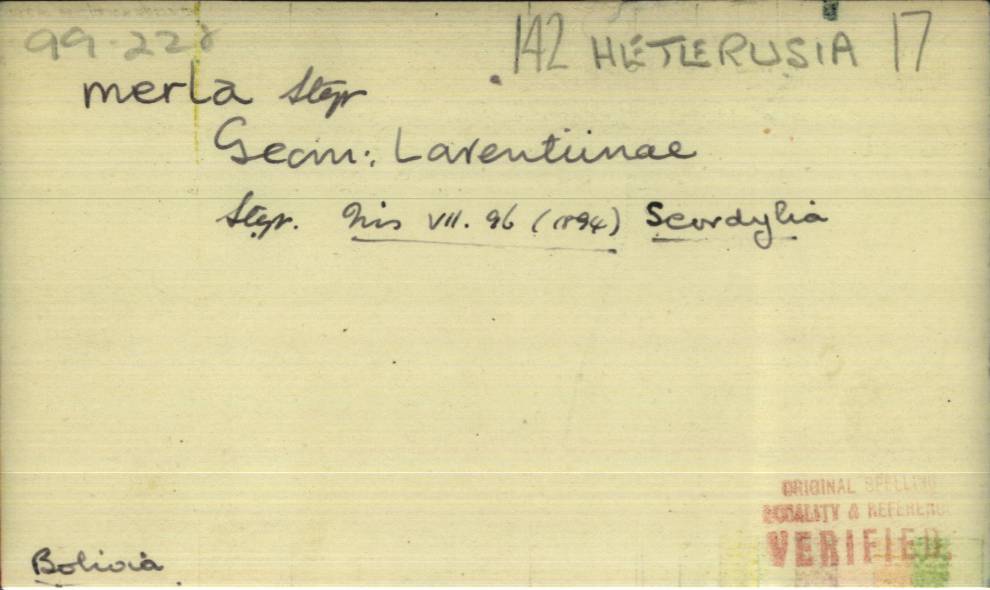 99.228
142 HETERUSIA 17
merla Stgr
Geom: Larentiinae
Stgr. Iris VII. 96 (1894) Scordylia
ORIGINAL SPELLING
LOCALITY & REFERENCE
VERIFIED
Bolivia